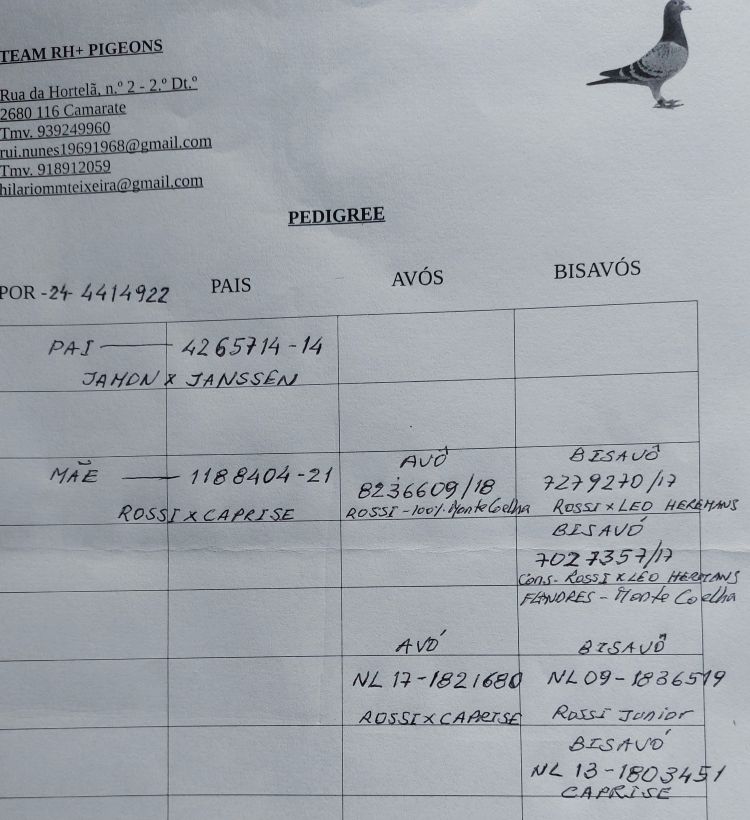 TEAM RH+ PIGEONS
Rua da Hortelã, n.º 2 - 2.º Dt.º
2680 116 Camarate
Tmv. 939249960
rui.nunes19691968@gmail.com
Tmv. 918912059
hilariommteixeira@gmail.com
PEDIGREE
POR -24- 4414922 PAIS AVÓS BISAVÓS
PAI 4265714-14
JAMON X JANSSEN
AVÔ BISAVÔ
MÃE 1188404-21 8236609/18 7279270/17
ROSSI X CAPRISE ROSSI-100% Monte Coelha ROSSI X LEO HEREMANS
BISAVÓ
7027357/17
Cons. ROSSI X LÉO HERMANS
FLANDRES - Monte Coelha
AVÓ BISAVÔ
NL 17-1821680 NL 09-1836519
ROSSI X CAPRISE Rossi Junior
BISAVÓ
NL 13-1803451
CAPRISE